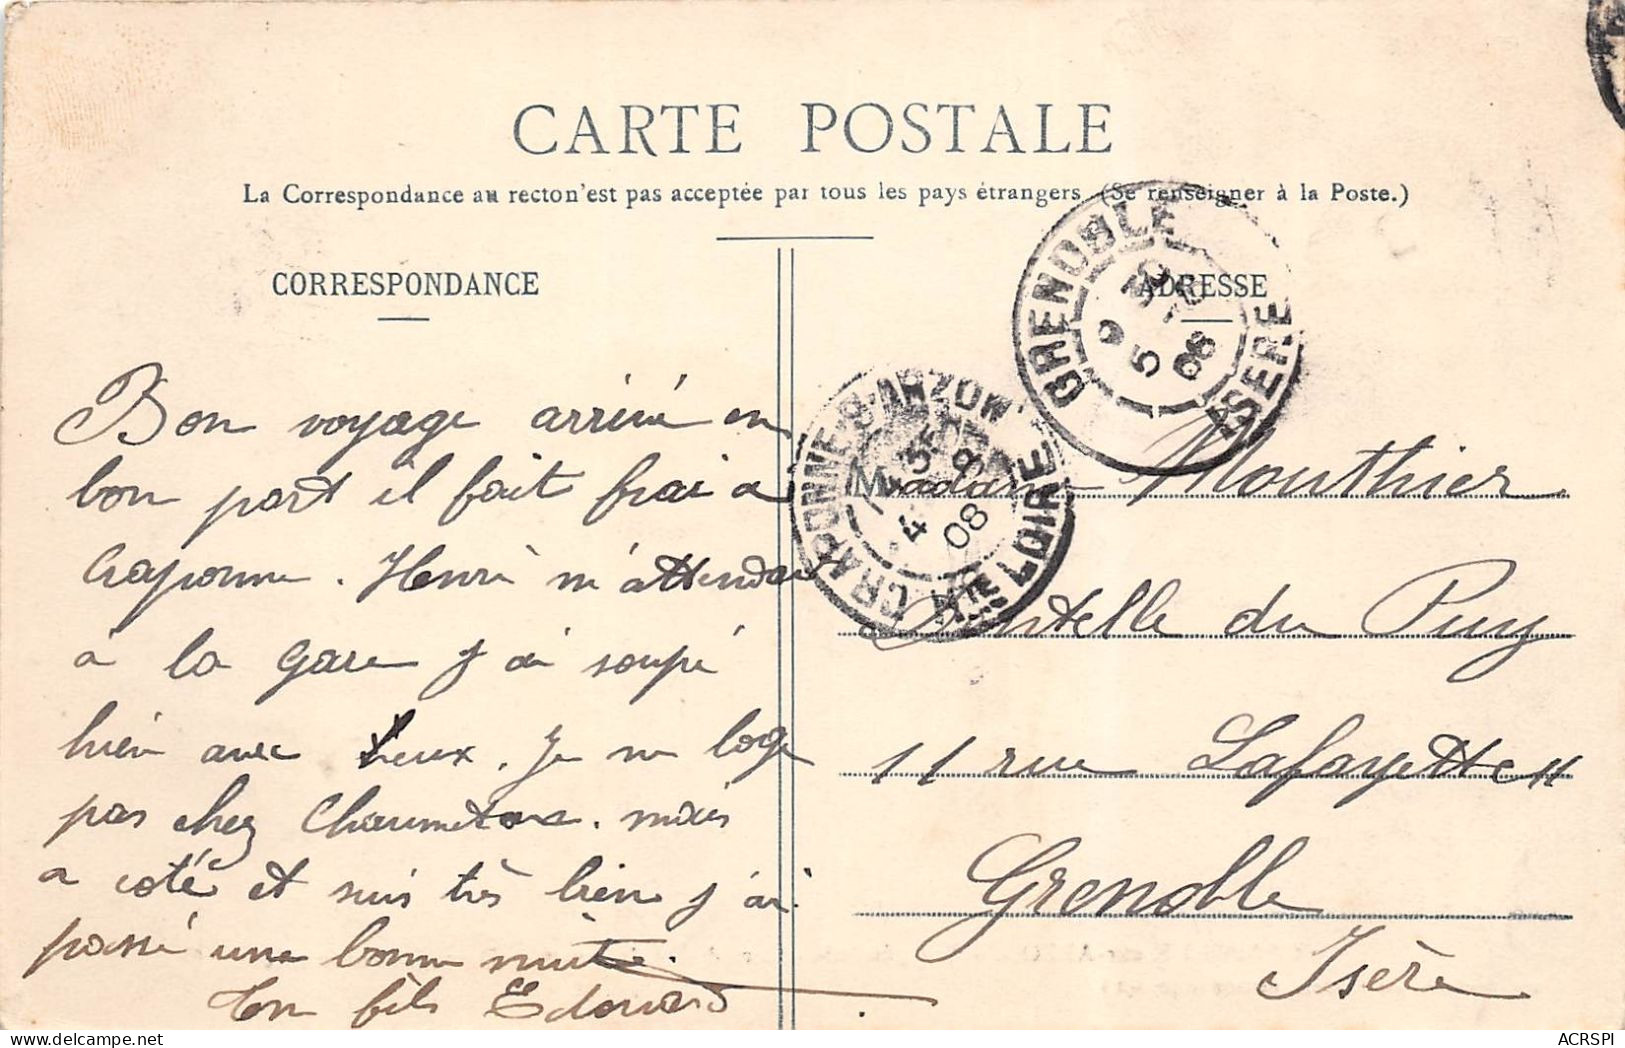 CARTE POSTALE
La Correspondance au recto n'est pas acceptée par tous les pays étrangers (Se renseigner à la Poste.)
CORRESPONDANCE
Bon voyage arrivé en
bon port il fait frai a
Craponne. Henri m'attendait
à la gare j'ai soupé
hier avec eux. Je ne loge
pas chez mais
a coté et suis très bien j'ai
passé une bonne nuit.
Ton fils Edouard
ADRESSE
GRENOBLE ISERE
5 08
CRAPONNE-S-ARZON
4 08
HTE LOIRE
Madame Mouthier
Dentelle du Puy
11 rue Lafayette 11
Grenoble
Isère
ACRSPI